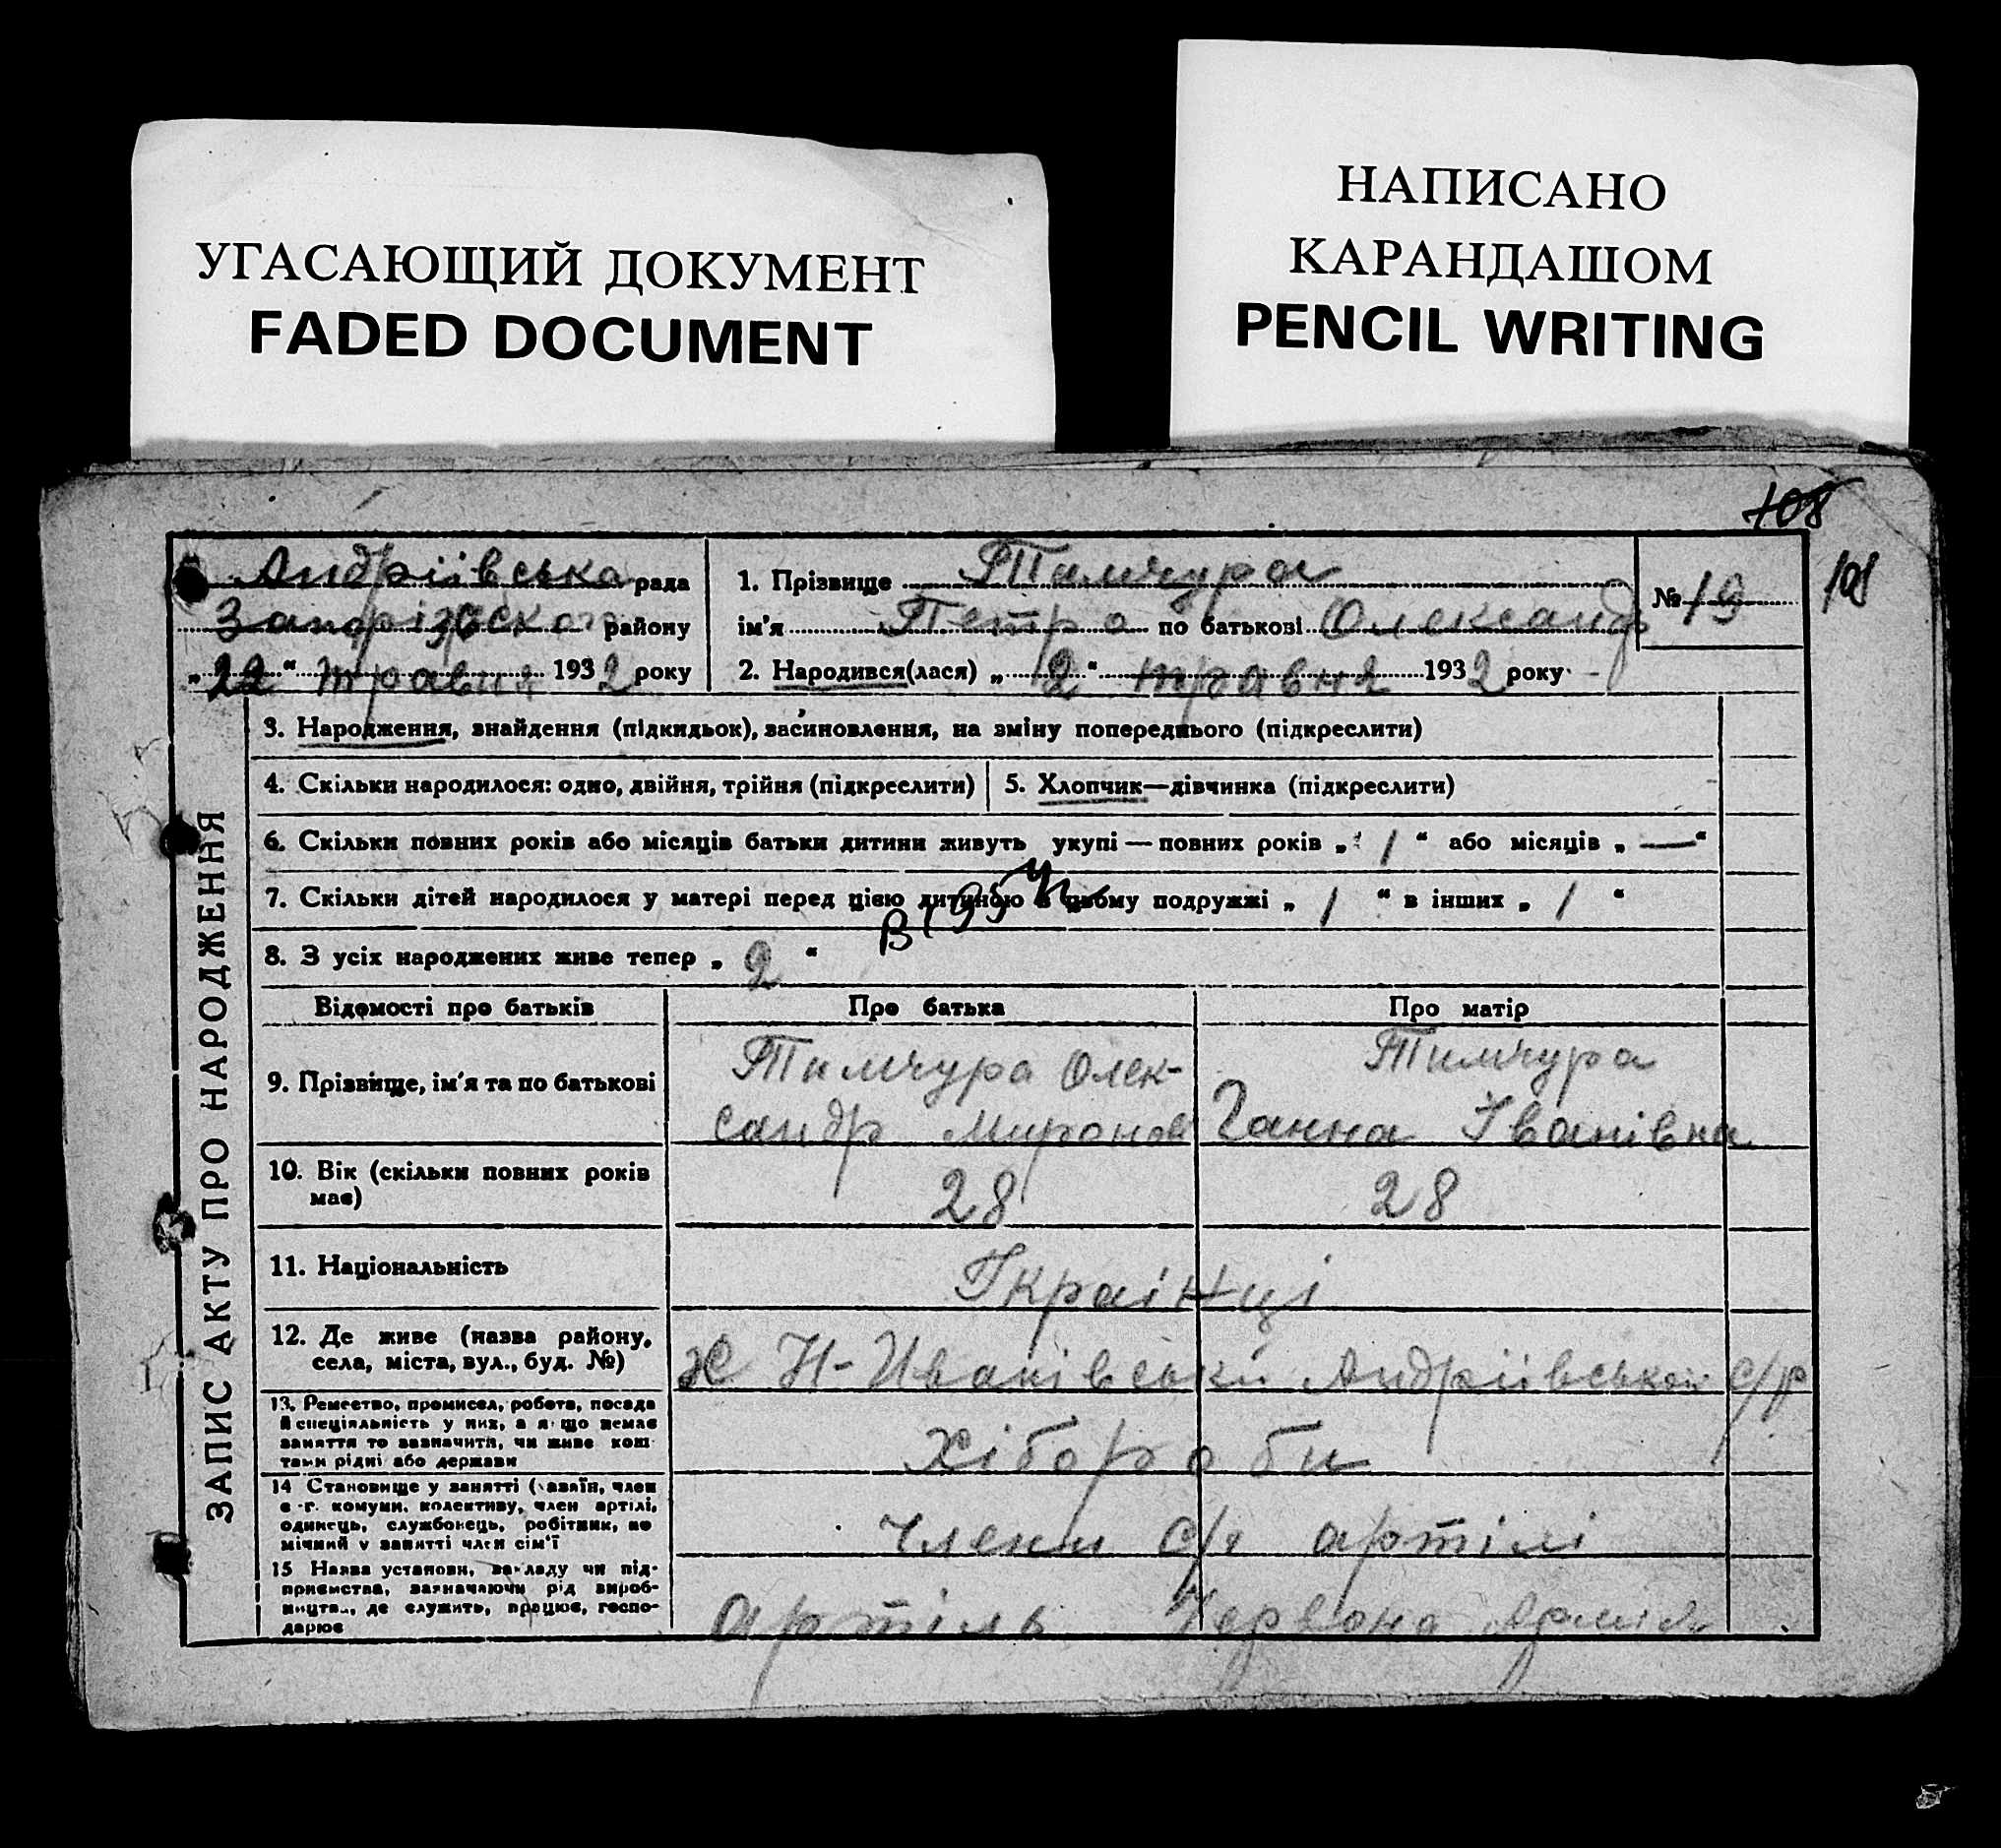 УГАСАЮЩИЙ ДОКУМЕНТ
FADED DOCUMENT
НАПИСАНО
КАРАНДАШОМ
PENCIL WRITING
108
108
Андріївська рада
Запорізьского району
„22“ травня 1932 року
1. Прізвище Тимчура
ім'я Петро по батькові Олександр
№ 19
2. Народився(лася) „2“ травня 1932 року
ЗАПИС АКТУ ПРО НАРОДЖЕННЯ
3. Народження, знайдення (підкидьок), засиновлення, на зміну попереднього (підкреслити)
4. Скільки народилося: одно, двійня, трійня (підкреслити)
5. Хлопчик—дівчинка (підкреслити)
6. Скільки повних років або місяців батьки дитини живуть укупі — повних років „1“ або місяців „—“
7. Скільки дітей народилося у матері перед цією дитиною в цьому подружжі „1“ в інших „1“
8. З усіх народжених живе тепер „2“
Відомості про батьків Про батька Про матір
9. Прізвище, ім'я та по батькові
Тимчура Олек-
сандр Миронов
Тимчура
Ганна Іванівна
10. Вік (скільки повних років
має)
28 28
11. Національність
Українці
12. Де живе (назва району,
села, міста, вул., буд. №)
х Н-Иванівський Андріївськой с/р
13. Ремество, промисел, робота, посада
й спеціяльність у них, а якщо немає
заняття то зазначити, чи живе кош-
тами рідні або держави
Хібороби
14 Становище у занятті (хазяїн, член
с.-г. комуни, колективу, член артілі,
одинець, службовець, робітник, по
мічний у занятті член сім'ї
члени с/г артілі
15 Назва установи, закладу чи під-
приємства, зазначаючи рід вироб-
ництва, де служить, працює, госпо-
дарює
артіль Червона Армія